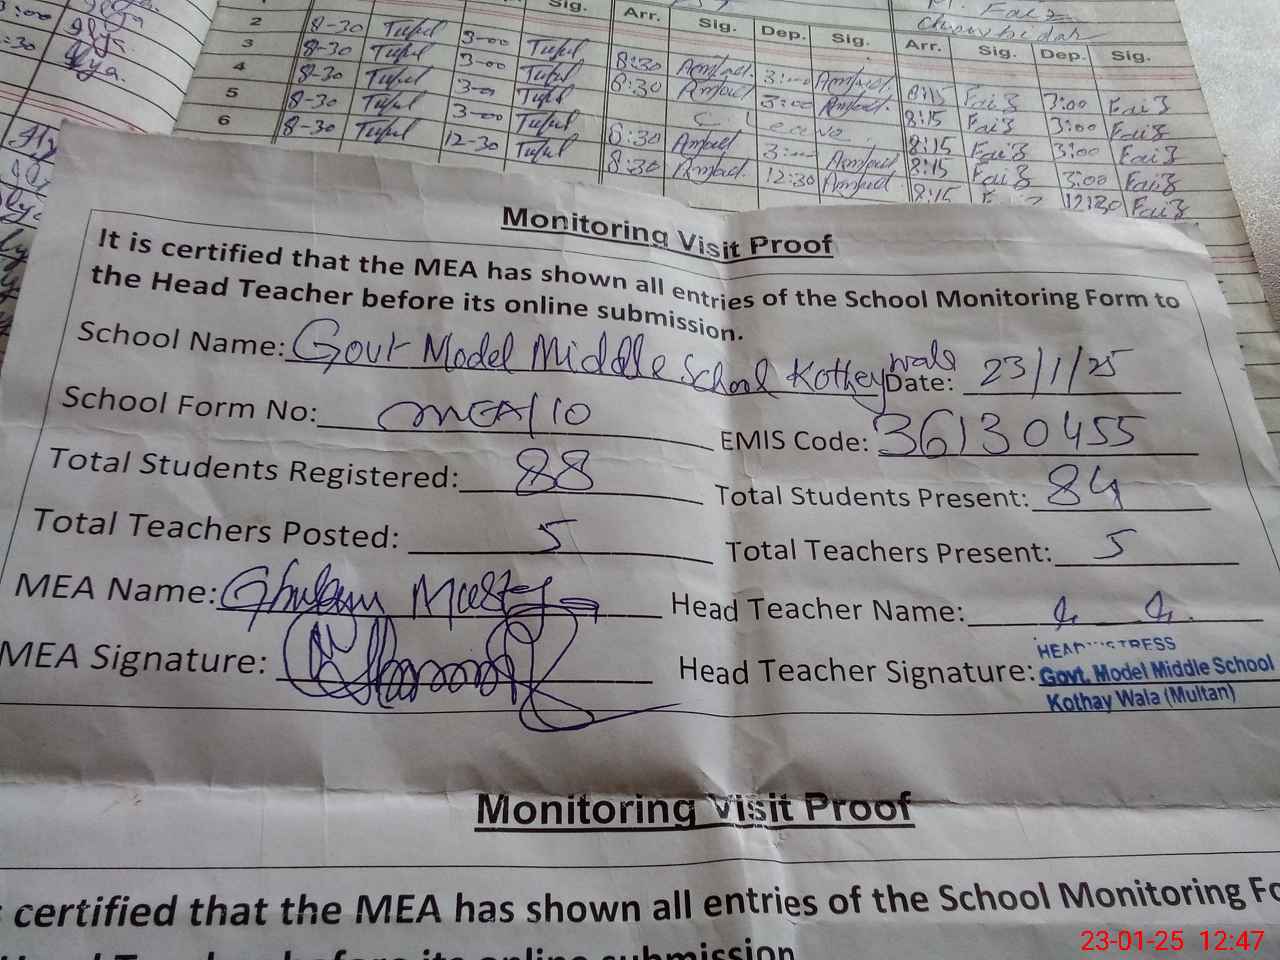 Faiz
Chowkidar
Sig. Arr. Sig. Dep. Sig. Arr. Sig. Dep. Sig.
2 8-30 Tuful 3-00 Tuful
3 8-30 Tuful 3-00 Tuful 8:30 Amjad 3:00 Amjad 8:15 Faiz 3:00 Faiz
4 8-30 Tuful 3-00 Tuful 8:30 Amjad 3:00 Amjad 8:15 Faiz 3:00 Faiz
5 8-30 Tuful 3-00 Tuful C. Leave 8:15 Faiz 3:00 Faiz
6 8-30 Tuful 12-30 Tuful 8:30 Amjad 3:00 Amjad 8:15 Faiz 3:00 Faiz
8:30 Amjad 12:30 Amjad 8:15 12:30 Faiz
Monitoring Visit Proof
It is certified that the MEA has shown all entries of the School Monitoring Form to
the Head Teacher before its online submission.
School Name: Govt Model Middle School Kotheywala Date: 23/1/25
School Form No: MEA/10 EMIS Code: 36130455
Total Students Registered: 88 Total Students Present: 84
Total Teachers Posted: 5 Total Teachers Present: 5
MEA Name: Ghulam Mustafa Head Teacher Name:
MEA Signature: Head Teacher Signature:
HEADMISTRESS
Govt. Model Middle School
Kothay Wala (Multan)
Monitoring Visit Proof
certified that the MEA has shown all entries of the School Monitoring Fo
Head Teacher before its online submission
23-01-25 12:47